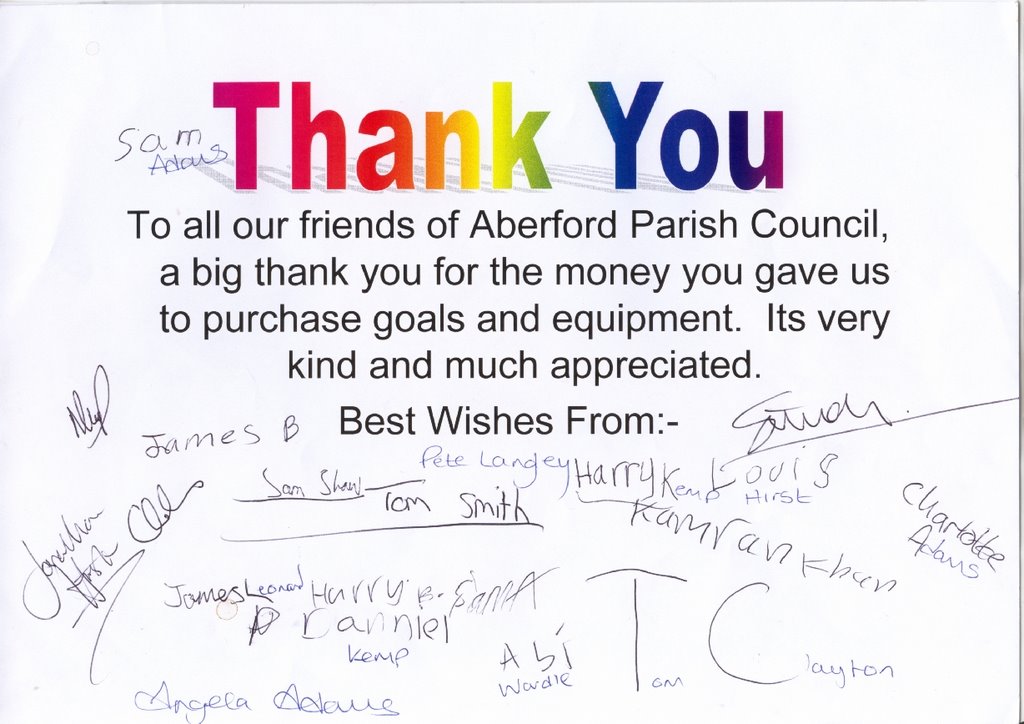 Thank You
Sam
Adams
To all our friends of Aberford Parish Council,
a big thank you for the money you gave us
to purchase goals and equipment. Its very
kind and much appreciated.
Best Wishes From:-
James B
Pete Langley
Harry Kemp
Louis
Hirst
Sam Shaw
Tom Smith
Kamran Khan
Charlottee
Adams
Jonathan
Hirst
James Leonard
Harry B-
Danniel
Kemp
Abi
Wardle
Tom Clayton
Angela Adams